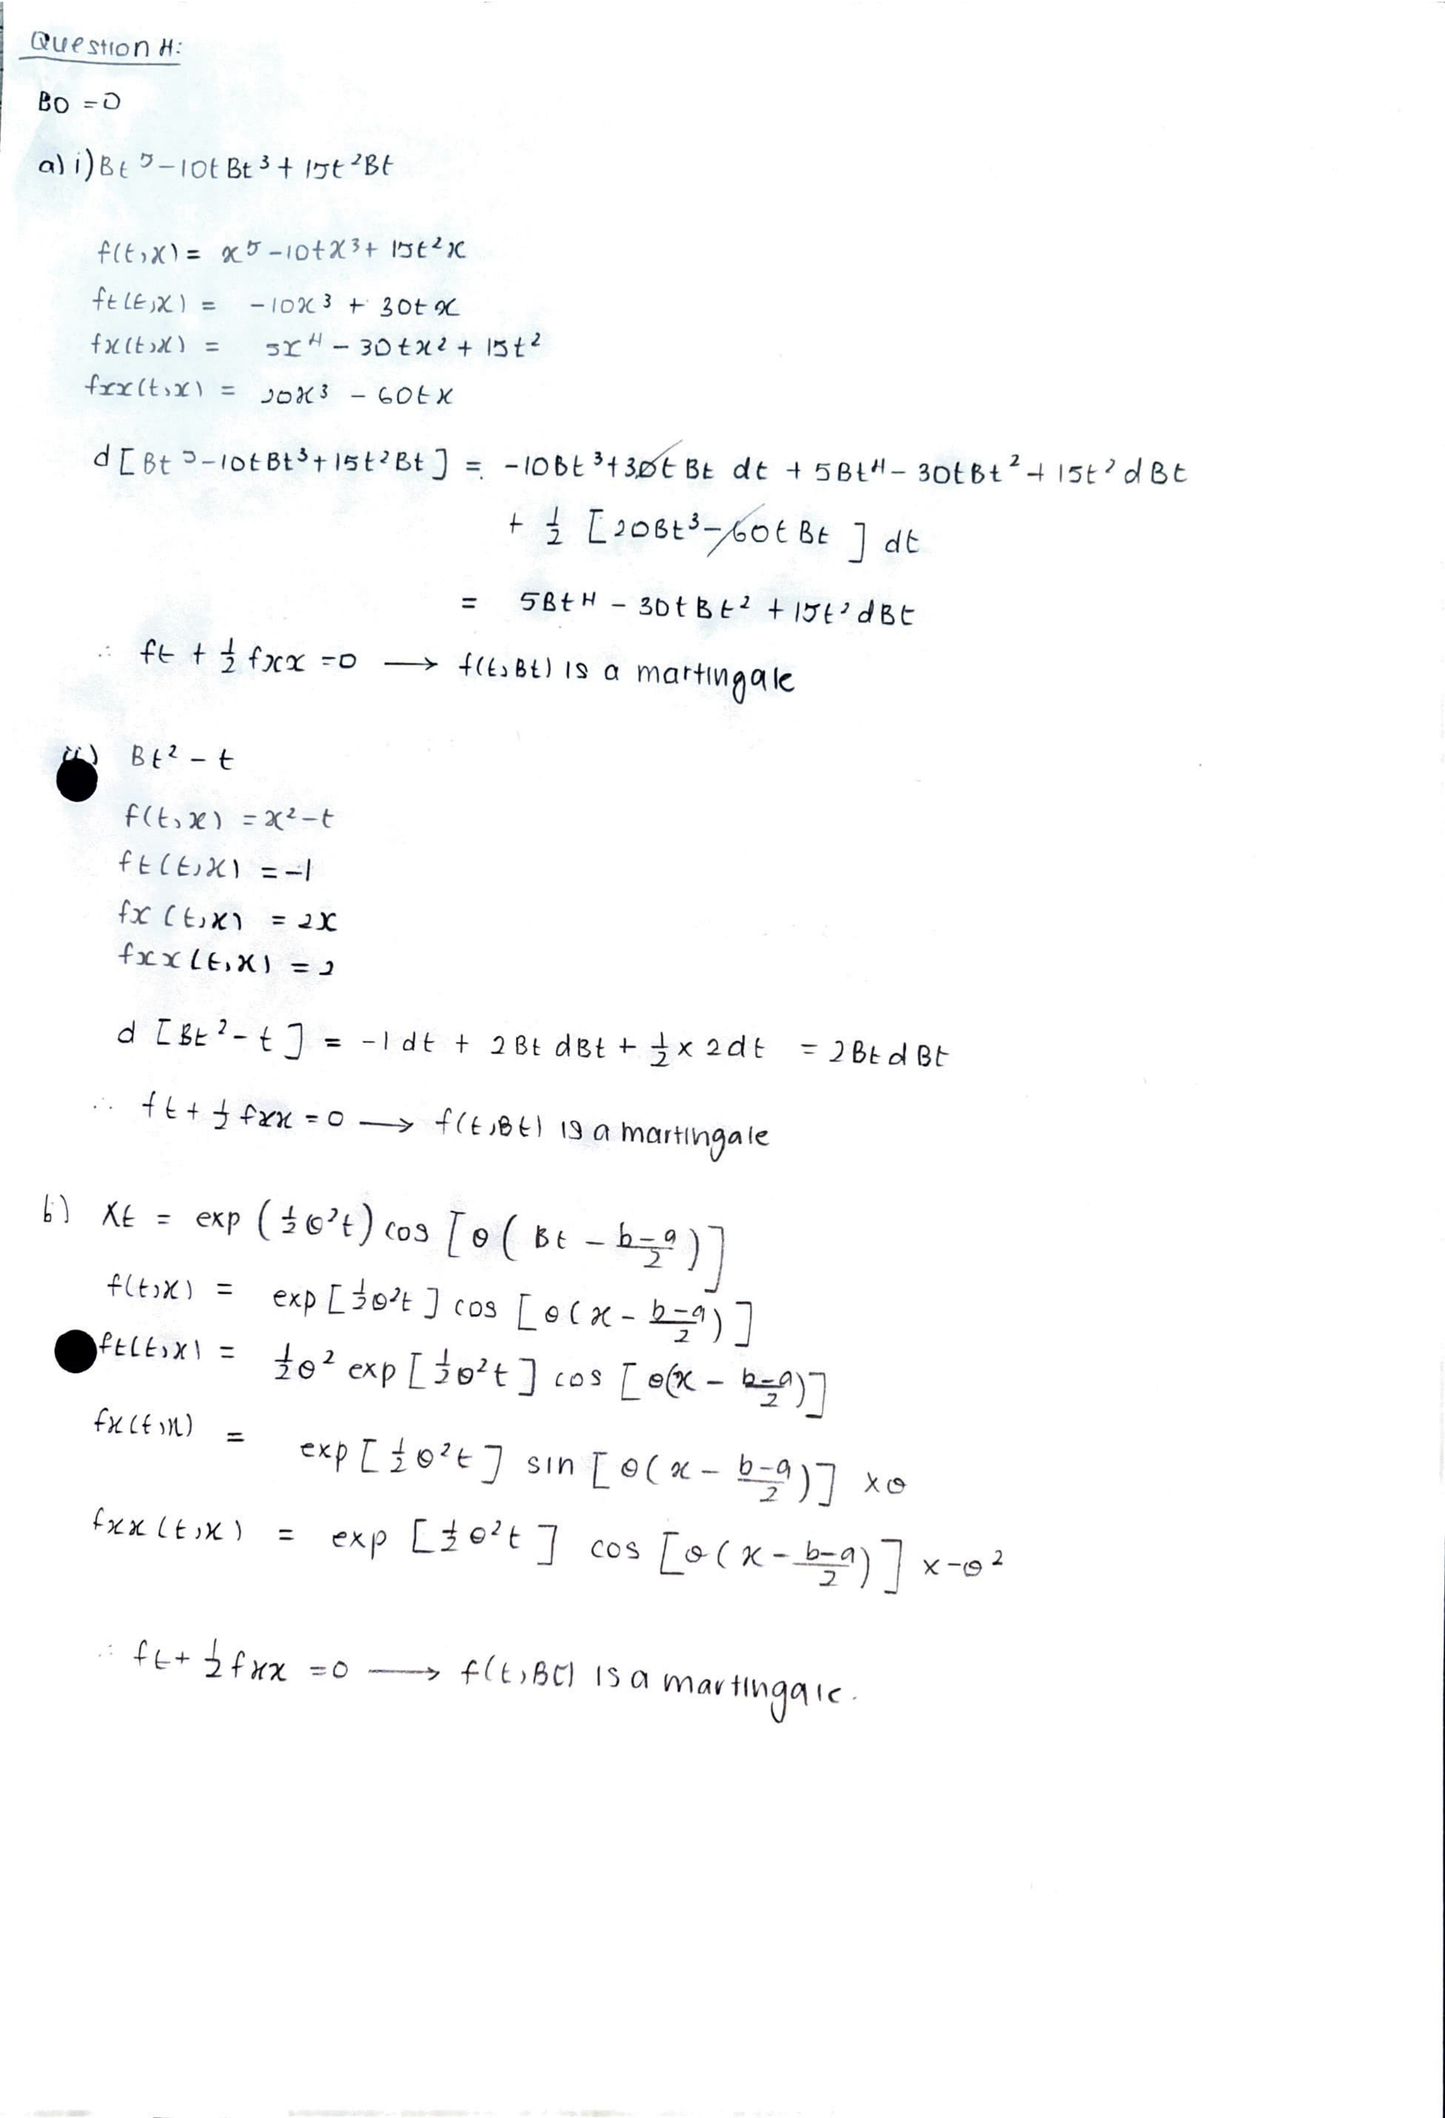 Question 4:
B0 = 0
a) i) Bt⁵ - 10tBt³ + 15t²Bt
f(t,x) = x⁵ - 10tx³ + 15t²x
ft(t,x) = -10x³ + 30tx
fx(t,x) = 5x⁴ - 30tx² + 15t²
fxx(t,x) = 20x³ - 60tx
d[Bt⁵ - 10tBt³ + 15t²Bt] = -10Bt³ + 30tBt dt + 5Bt⁴ - 30tBt² + 15t² dBt
+ ½ [20Bt³ - 60tBt] dt
= 5Bt⁴ - 30tBt² + 15t² dBt
∴ ft + ½ fxx = 0 → f(t,Bt) is a martingale
ii) Bt² - t
f(t,x) = x² - t
ft(t,x) = -1
fx(t,x) = 2x
fxx(t,x) = 2
d[Bt² - t] = -1dt + 2BtdBt + ½ × 2dt = 2BtdBt
∴ ft + ½ fxx = 0 → f(t,Bt) is a martingale
b) Xt = exp(½θ²t) cos[θ(Bt - (b-a)/2)]
f(t,x) = exp[½θ²t] cos[θ(x - (b-a)/2)]
ft(t,x) = ½θ² exp[½θ²t] cos[θ(x - (b-a)/2)]
fx(t,x) = exp[½θ²t] sin[θ(x - (b-a)/2)] × θ
fxx(t,x) = exp[½θ²t] cos[θ(x - (b-a)/2)] × -θ²
∴ ft + ½ fxx = 0 → f(t,Bt) is a martingale.